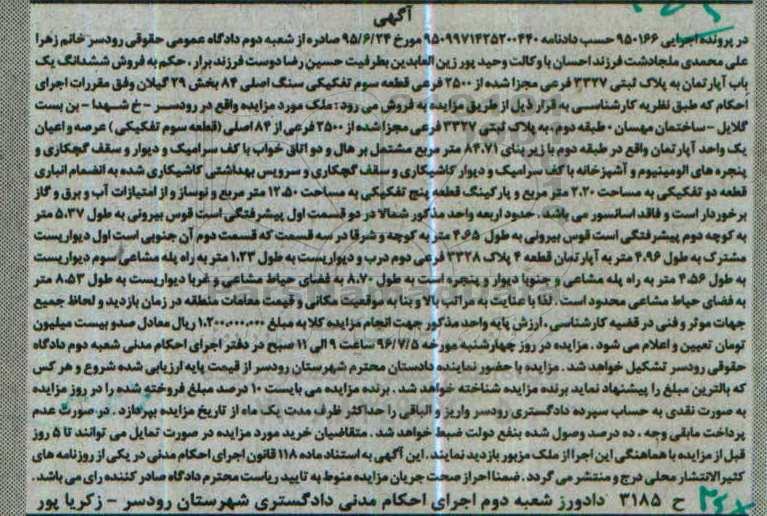 آگهی
در پرونده اجرایی ۹۵۰۱۶۶ حسب دادنامه ۹۵۰۹۹۷۱۴۲۵۲۰۰۴۴۰ مورخ ۹۵/۶/۲۴ صادره از شعبه دوم دادگاه عمومی حقوقی رودسر خانم زهرا
علی محمدی ملجادشت فرزند احسان با وکالت وحید پور زین العابدین بطرفیت حسین رضا دوست فرزند برار، حکم به فروش ششدانگ یک
باب آپارتمان به پلاک ثبتی ۳۳۲۷ فرعی مجزا شده از ۲۵۰۰ فرعی قطعه سوم تفکیکی سنگ اصلی ۸۴ بخش ۲۹ گیلان وفق مقررات اجرای
احکام که طبق نظریه کارشناسی به قرار ذیل از طریق مزایده به فروش می رود : ملک مورد مزایده واقع در رودسر - خ شهدا - بن بست
گلایل - ساختمان مهسان - طبقه دوم ، به پلاک ثبتی ۳۳۲۷ فرعی مجزا شده از ۲۵۰۰ فرعی از ۸۴ اصلی (قطعه سوم تفکیکی) عرصه و اعیان
یک واحد آپارتمان واقع در طبقه دوم با زیر بنای ۸۴.۷۱ متر مربع مشتمل بر هال و دو اتاق خواب با کف سرامیک و دیوار و سقف گچکاری و
پنجره های الومینیوم و آشپزخانه با کف سرامیک و دیوار کاشیکاری و سقف گچکاری و سرویس بهداشتی کاشیکاری شده به انضمام انباری
قطعه دو تفکیکی به مساحت ۲.۲۰ متر مربع و پارکینگ قطعه پنج تفکیکی به مساحت ۱۲.۵۰ متر مربع و نوساز و از امتیازات آب و برق و گاز
برخوردار است و فاقد اسانسور می باشد . حدود اربعه واحد مذکور شمالا در دو قسمت اول پیشرفتگی است قوس بیرونی به طول ۵.۳۷ متر
به کوچه دوم پیشرفتگی است قوس بیرونی به طول ۴.۶۵ متر به کوچه و شرقا در سه قسمت که قسمت دوم آن جنوبی است اول دیواریست
مشترک به طول ۴.۹۶ متر به آپارتمان قطعه ۴ پلاک ۳۳۲۸ فرعی دوم درب و دیواریست به طول ۱.۲۳ متر به راه پله مشاعی سوم دیواریست
به طول ۴.۵۶ متر به راه پله مشاعی و جنوبا دیوار و پنجره است به طول ۸.۷۰ به فضای حیاط مشاعی و غربا دیواریست به طول ۸.۵۳ متر
به فضای حیاط مشاعی محدود است . لذا با عنایت به مراتب بالا و بنا به موقعیت مکانی و قیمت معاملات منطقه در زمان بازدید و لحاظ جمیع
جهات موثر و فنی در قضیه کارشناسی ، ارزش پایه واحد مذکور جهت انجام مزایده کلا به مبلغ ۱،۲۰۰،۰۰۰،۰۰۰ ریال معادل صد و بیست میلیون
تومان تعیین و اعلام می شود . مزایده در روز چهارشنبه مورخه ۹۶/۷/۵ ساعت ۹ الی ۱۱ صبح در دفتر اجرای احکام مدنی شعبه دوم دادگاه
حقوقی رودسر تشکیل خواهد شد . مزایده با حضور نماینده دادستان محترم شهرستان رودسر از قیمت پایه ارزیابی شده شروع و هر کس
که بالاترین مبلغ را پیشنهاد نماید برنده مزایده شناخته خواهد شد . برنده مزایده می بایست ۱۰ درصد مبلغ فروخته شده را در روز مزایده
به صورت نقدی به حساب سپرده دادگستری رودسر واریز و الباقی را حداکثر ظرف مدت یک ماه از تاریخ مزایده بپردازد . در صورت عدم
پرداخت مابقی وجه ، ده درصد وصول شده بنفع دولت ضبط خواهد شد . متقاضیان خرید مورد مزایده در صورت تمایل می توانند تا ۵ روز
قبل از مزایده با هماهنگی این اجرا از ملک مزبور بازدید نمایند . این آگهی به استناد ماده ۱۱۸ قانون اجرای احکام مدنی در یکی از روزنامه های
کثیرالانتشار محلی درج و منتشر می گردد . ضمنا احراز صحت جریان مزایده منوط به تایید ریاست محترم دادگاه صادر کننده رای می باشد .
ح ۳۱۸۵ دادورز شعبه دوم اجرای احکام مدنی دادگستری شهرستان رودسر - زکریا پور